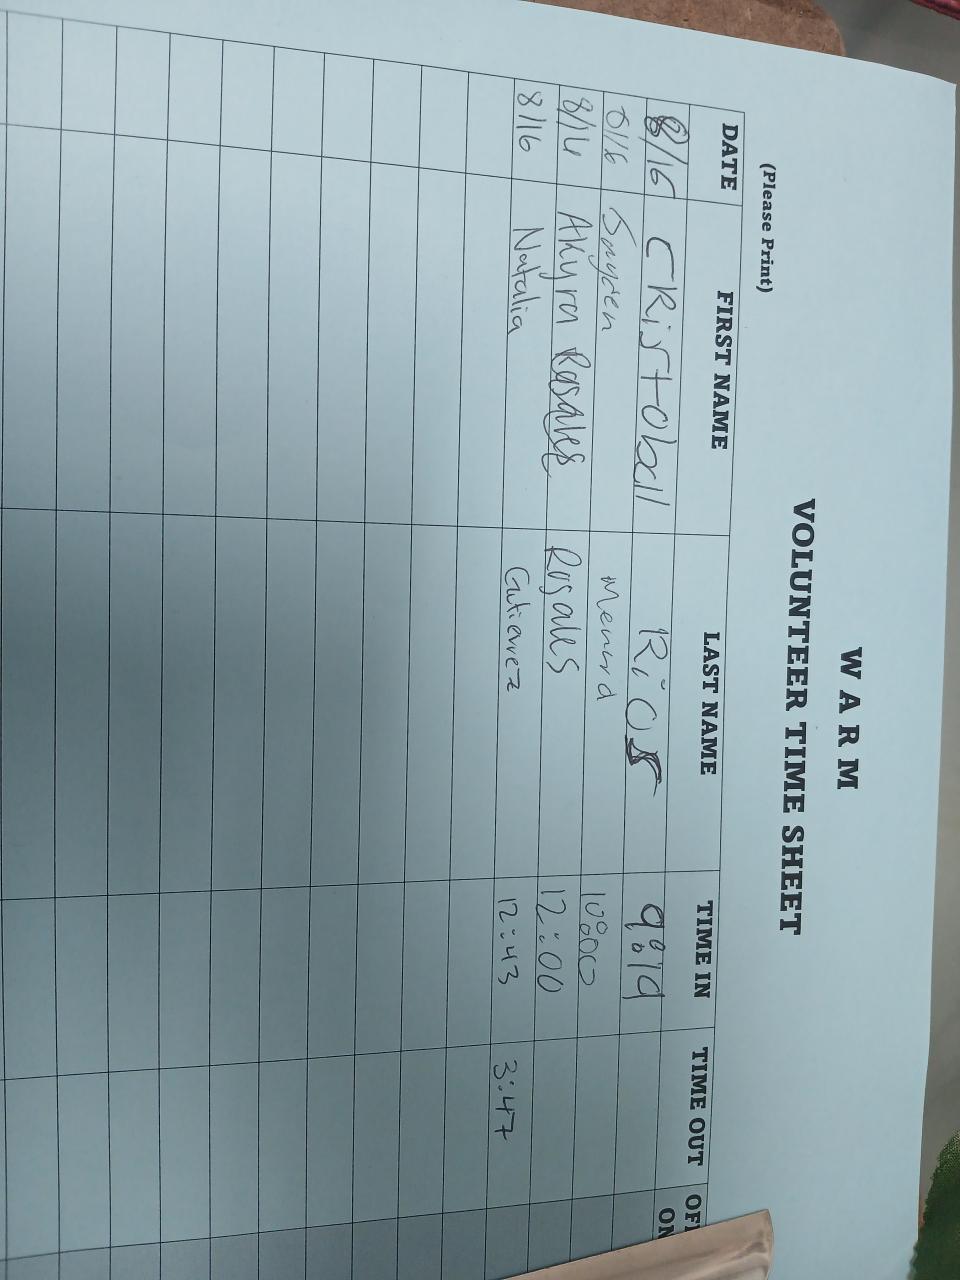 W A R M
VOLUNTEER TIME SHEET
(Please Print)
DATE FIRST NAME LAST NAME TIME IN TIME OUT
8/16 CRistoball Rios 9:19
8/16 Jayden Menard 10:00
8/16 Akyra Rosales Rosales 12:00
8/16 Natalia Gutierrez 12:43 3:47